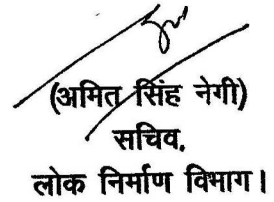 (अमित सिंह नेगी)
सचिव,
लोक निर्माण विभाग।